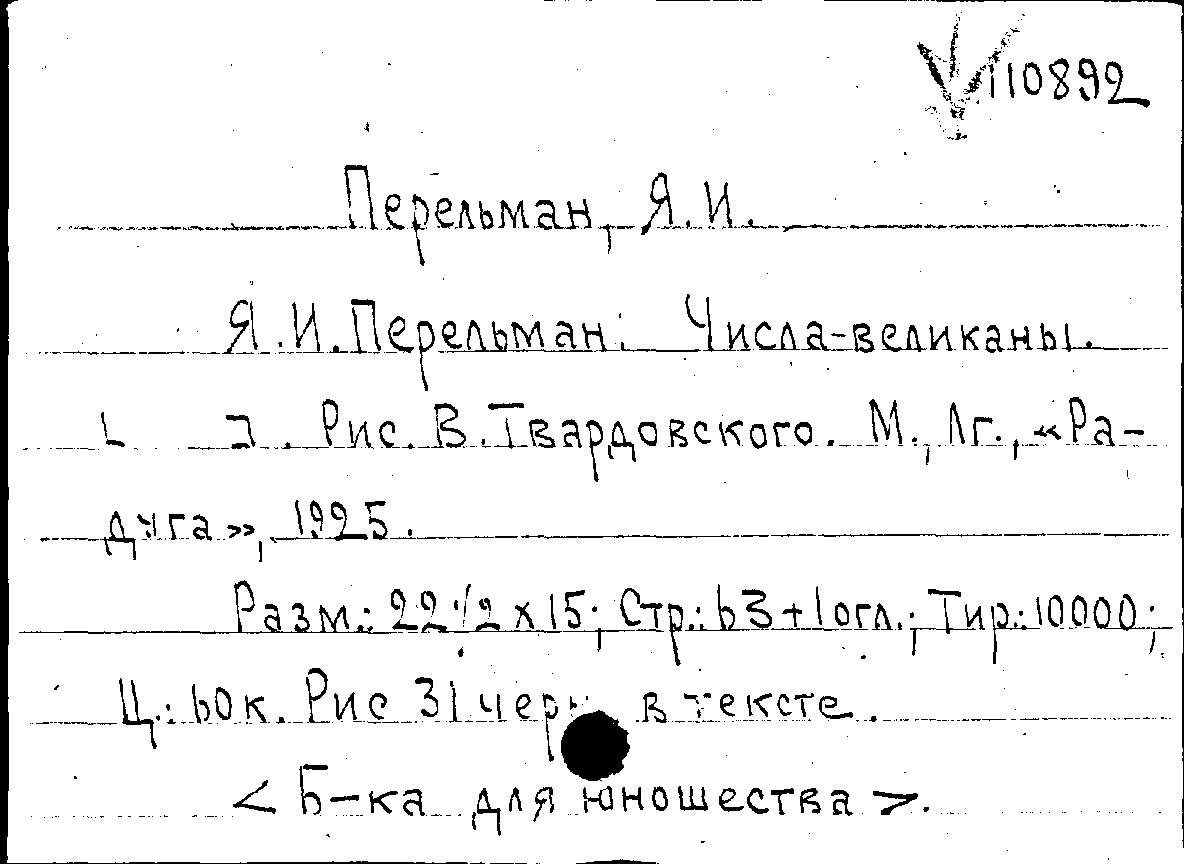 110892
Перельман, Я.И.
Я.И.Перельман. Числа-великаны.
[ ]. Рис. В.Твардовского. М., Лг., «Ра-
дуга», 1925.
Разм.: 22 1/2 х 15; Стр.: 63+1огл.; Тир.: 10000;
Ц.: 60к. Рис 31 черн в тексте.
< Б-ка для юношества >.